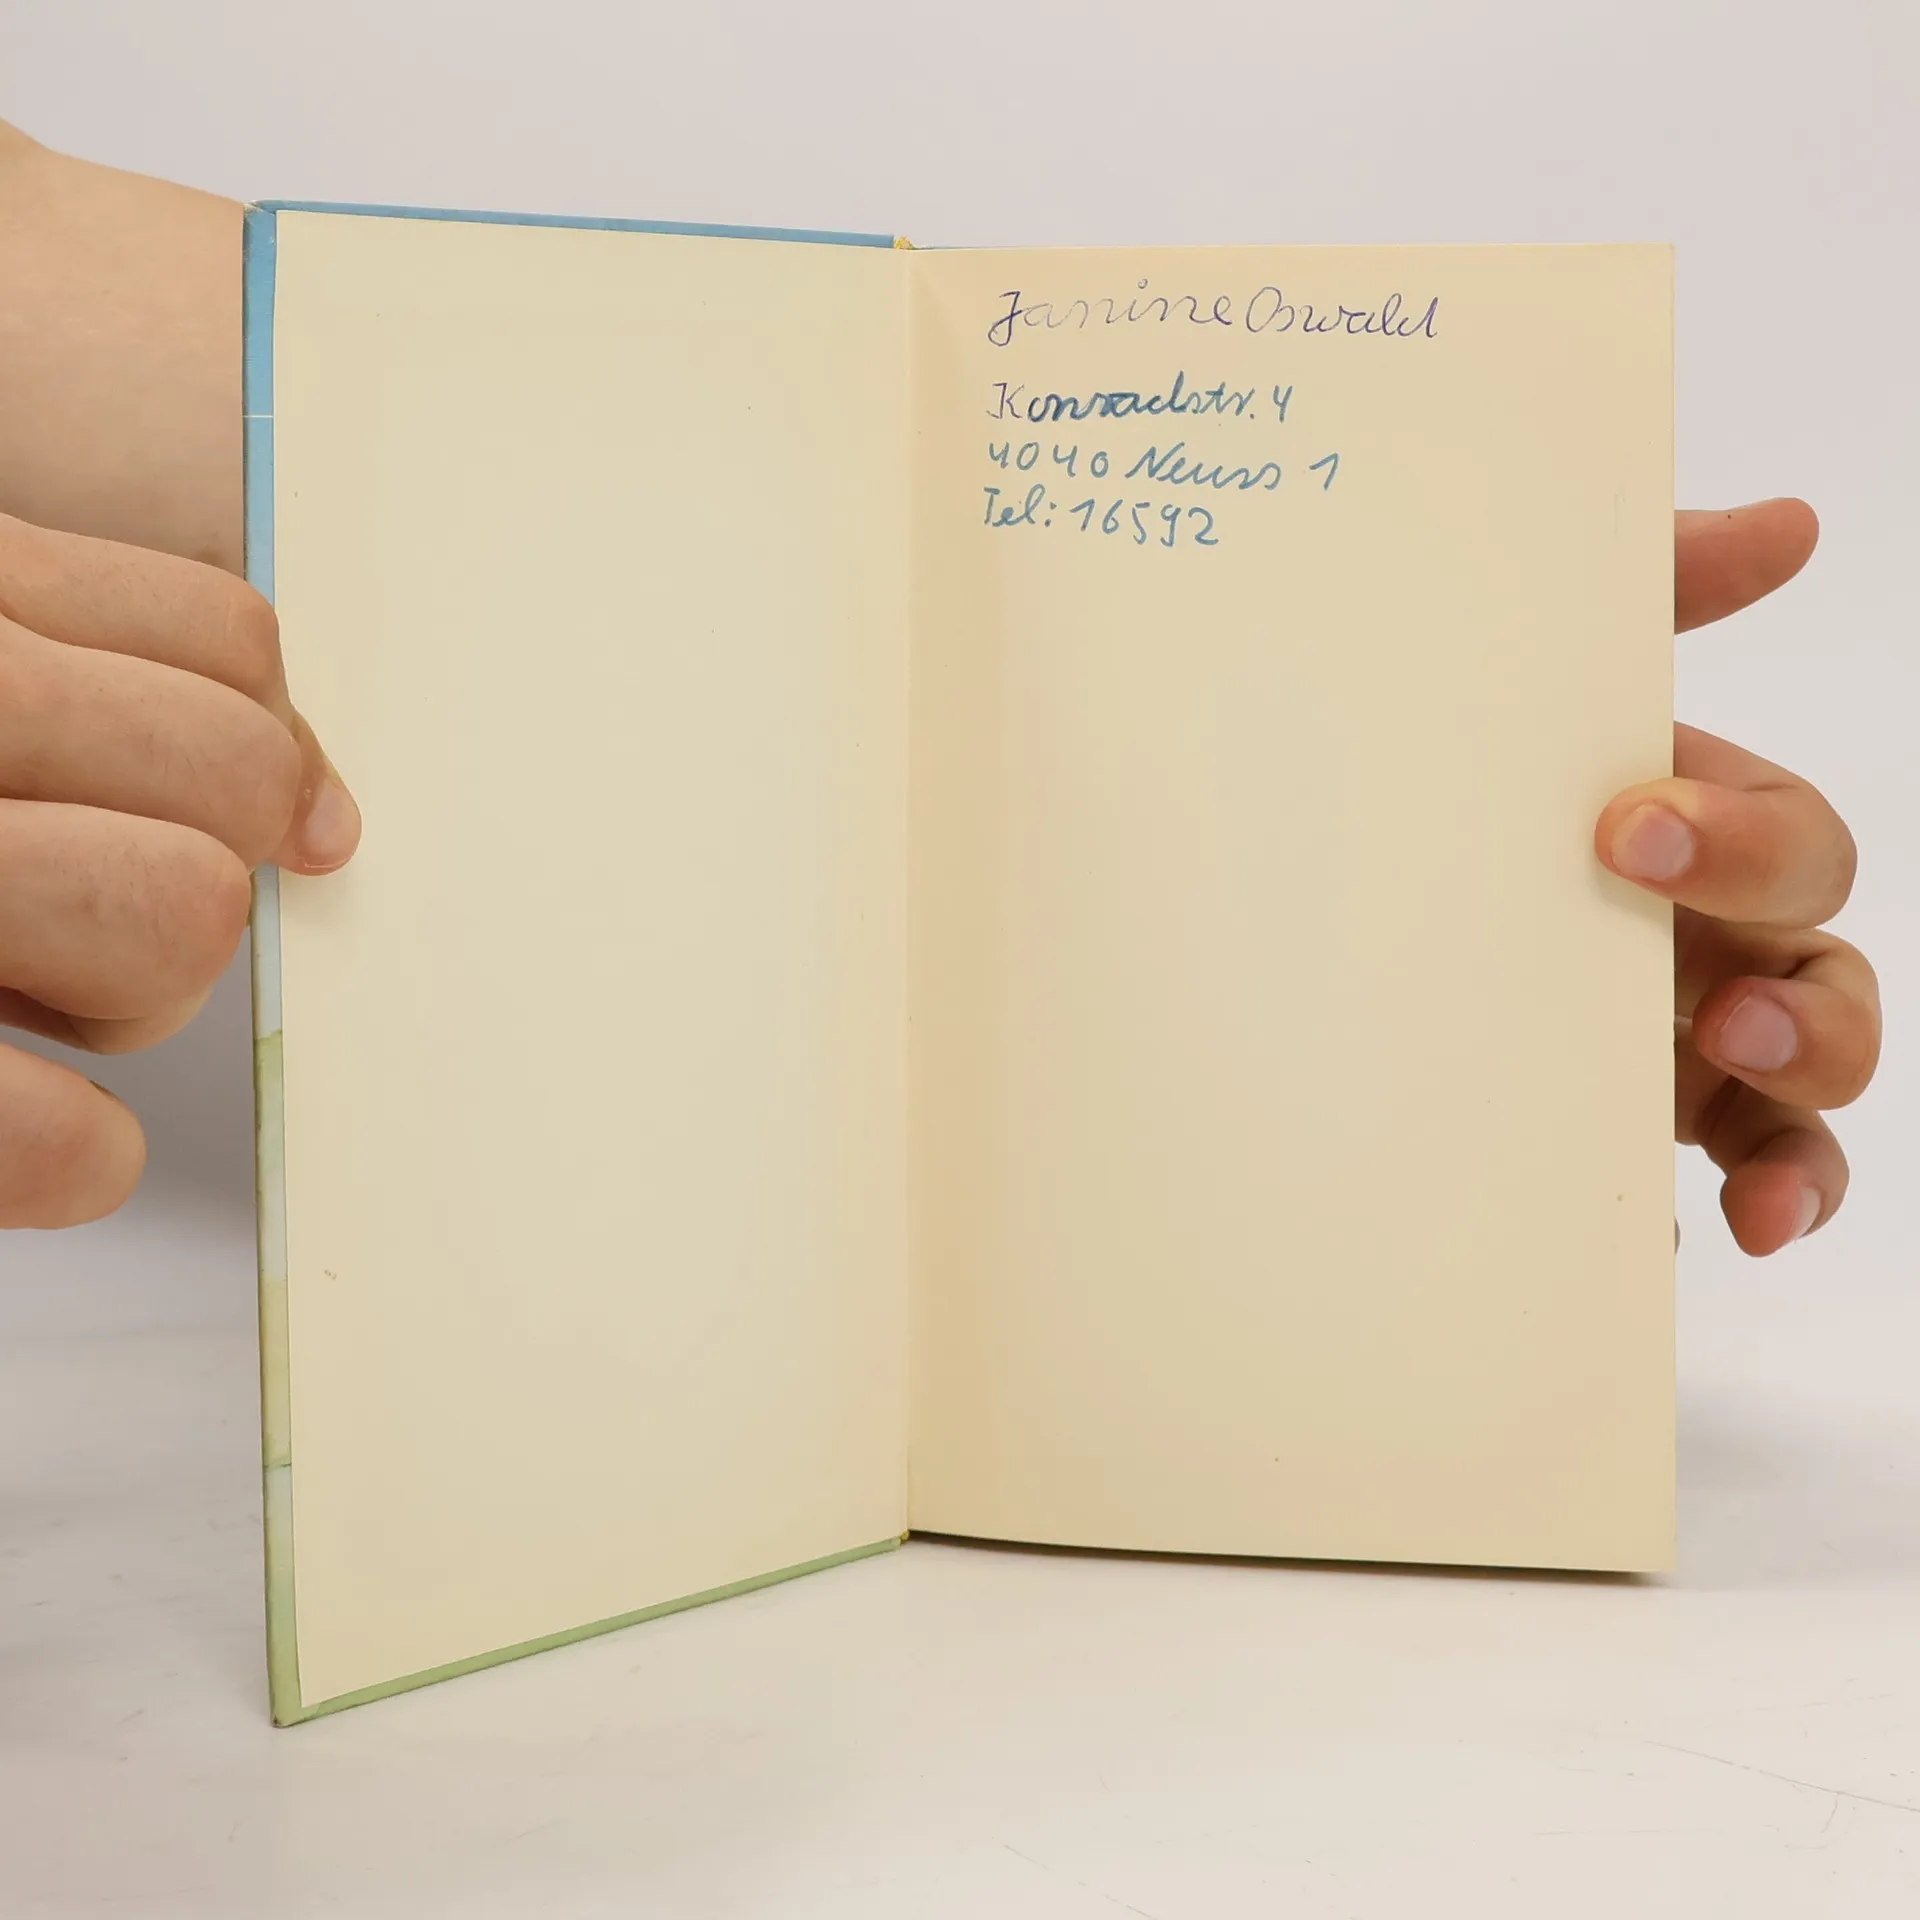 Janine Oswald
Konradstr. 4
4040 Neuss 1
Tel: 16592